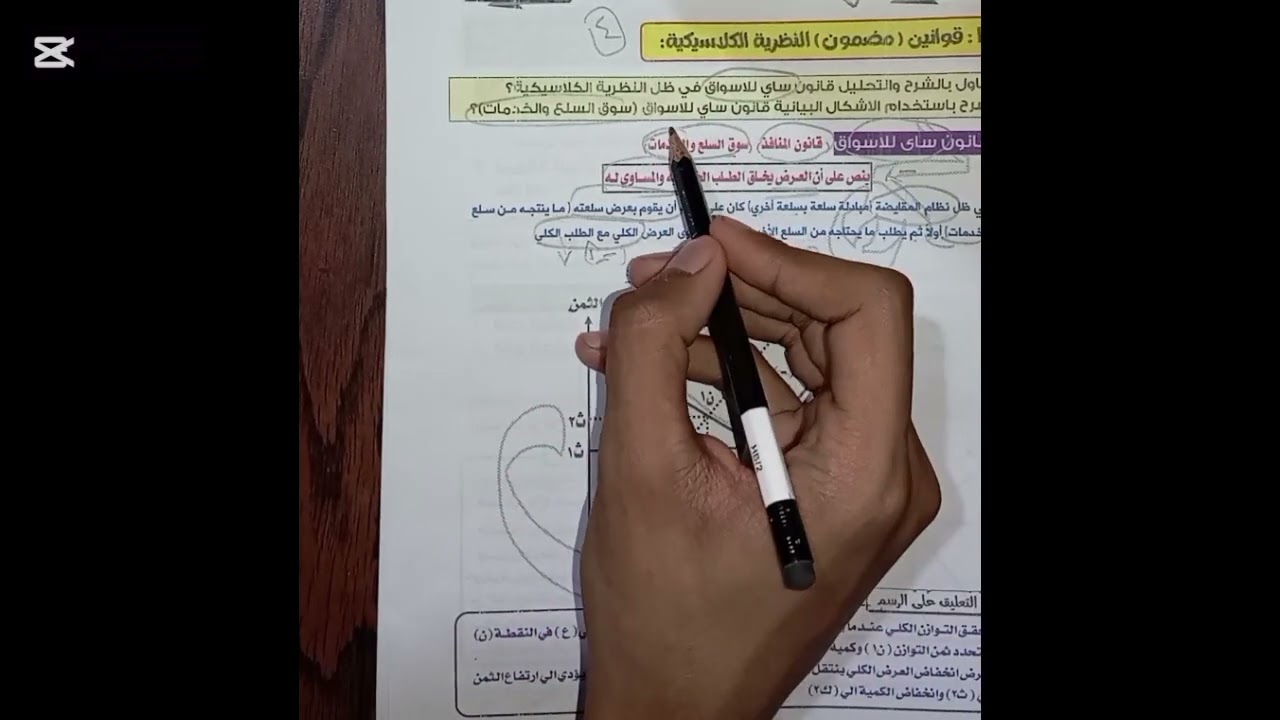 : قوانين (مضمون) النظرية الكلاسيكية:
٤
بالشرح والتحليل قانون ساي للاسواق في ظل النظرية الكلاسيكية؟
باستخدام الاشكال البيانية قانون ساي للاسواق (سوق السلع والخدمات)؟
ساى للاسواق (قانون المنافذ) سوق السلع
ينص على أن العرض يخلق الطلب والمساوى له
ظل نظام المقايضة (مبادلة سلعة بسلعة أخري) كان أن يقوم بعرض سلعته (ما ينتجه من سلع
أولاً ثم يطلب ما يحتاجه من السلع العرض الكلي مع الطلب الكلي
الثمن
ن١
ث٢
ث١
HB/2
التعليق على الرسم
التوازن الكلي عندما (ع) في النقطة (ن)
ثمن التوازن (ن١) وكمية
انخفاض العرض الكلي ينتقل يؤدي الي ارتفاع الثمن
(ث٢) وانخفاض الكمية الي (ك٢)